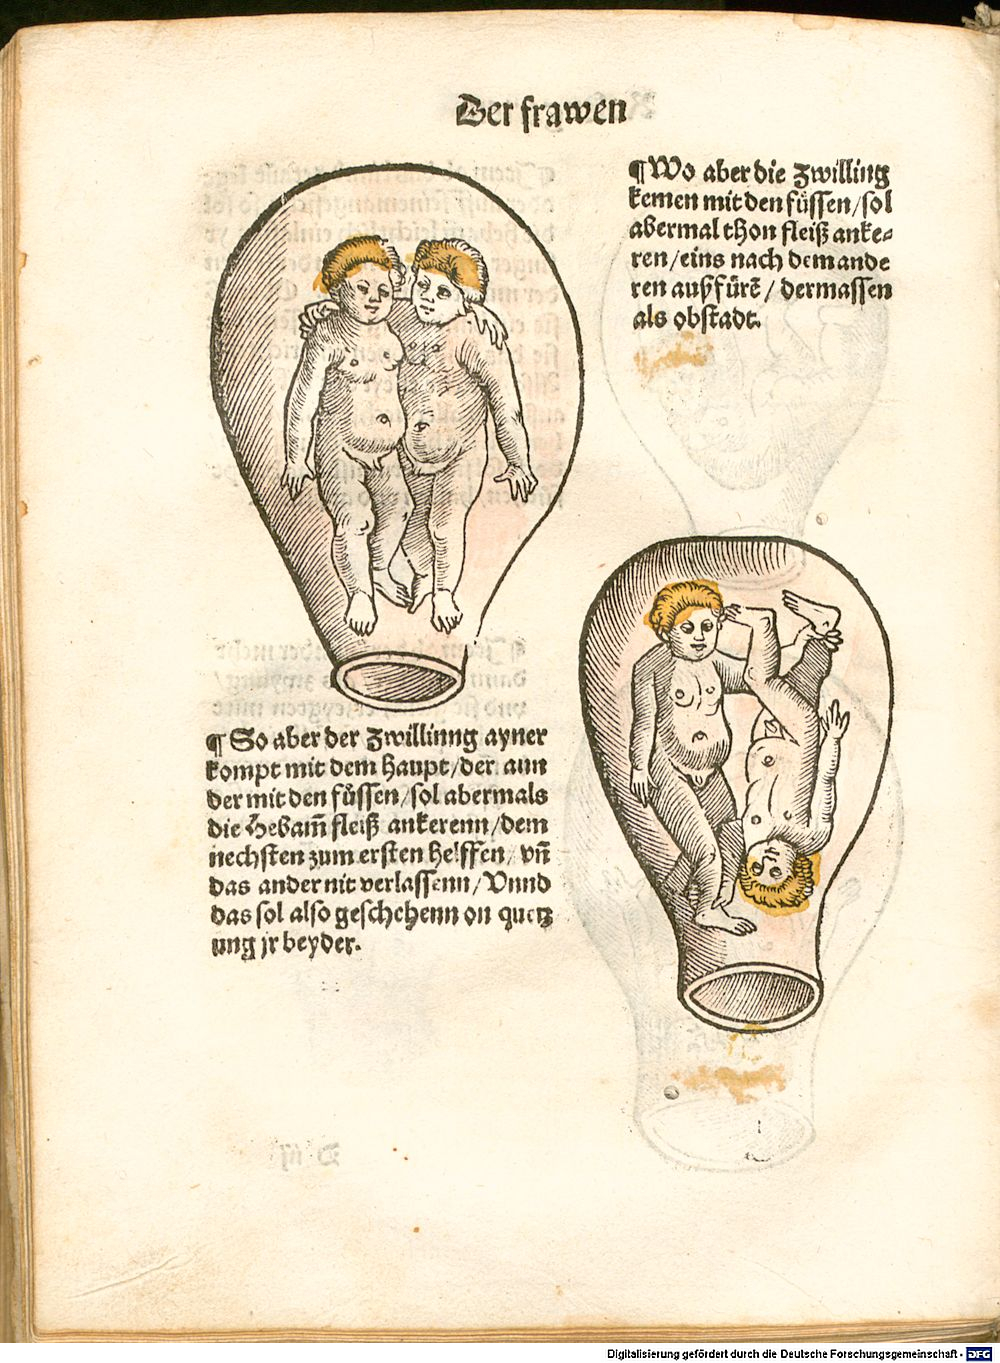 Der frawen
¶ Wo aber die zwilling
kemen mit den füssen/sol
abermal thon fleiß anke⸗
ren/eins nach dem ande
ren außfürẽ/ dermassen
als obstadt.
¶ So aber der zwillinng ayner
kompt mit dem haupt/der ann
der mit den füssen/sol abermals
die Hebam̃ fleiß ankerenn/dem
nechsten zum ersten helffen/ vñ
das ander nit verlassenn/Vnnd
das sol also geschehenn on quetz
ung jr beyder.
Digitalisierung gefördert durch die Deutsche Forschungsgemeinschaft - DFG